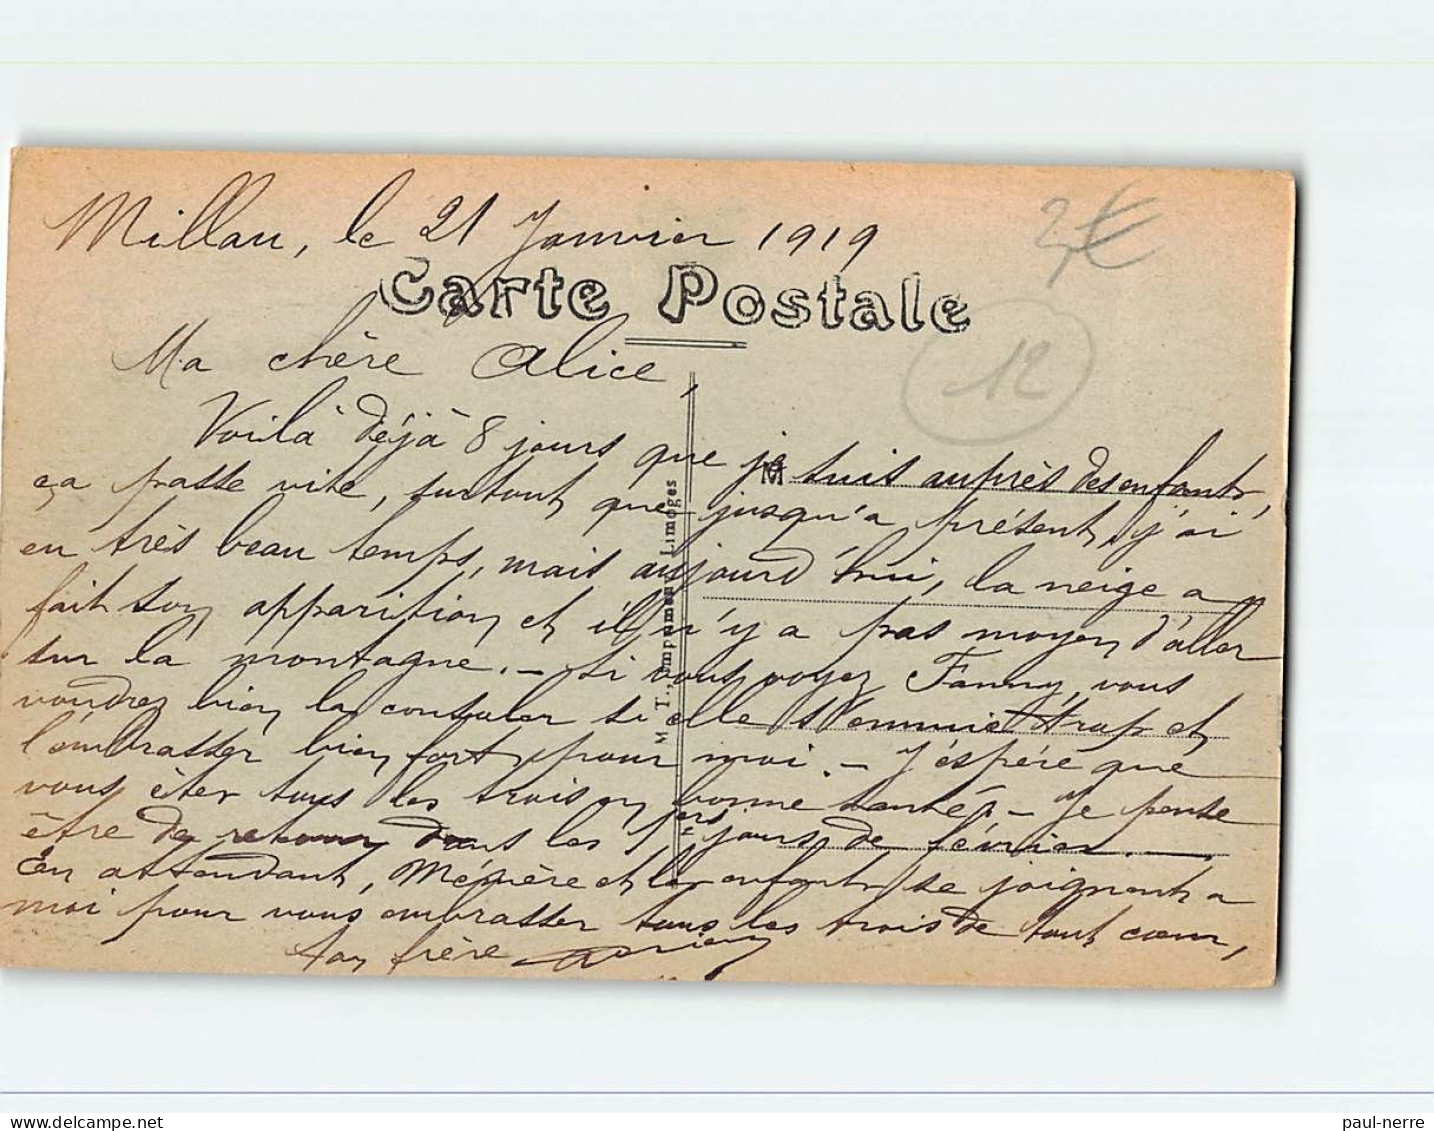 Millau, le 21 Janvier 1919
2€
Carte Postale
12
Ma chère Alice,
Voilà déjà 8 jours que je suis auprès des enfants,
M
ça passe vite, surtout que jusqu'à présent j'ai
eu très beau temps, mais aujourd'hui, la neige a
fait son apparition et il n'y a pas moyen d'aller
sur la montagne. — Si vous voyez Fanny, vous
voudrez bien la consoler si elle s'ennuie trop et
l'embrasser bien fort pour moi. — J'éspère que
vous êtes tous les trois en bonne santé. — Je pense
être de retour dans les 1ers jours de février. —
En attendant, Mémère et les enfants se joignent a
moi pour vous embrasser tous les trois de tout cœur,
Ton frère
M. T., Imprimeur Limoges
paul-nerre